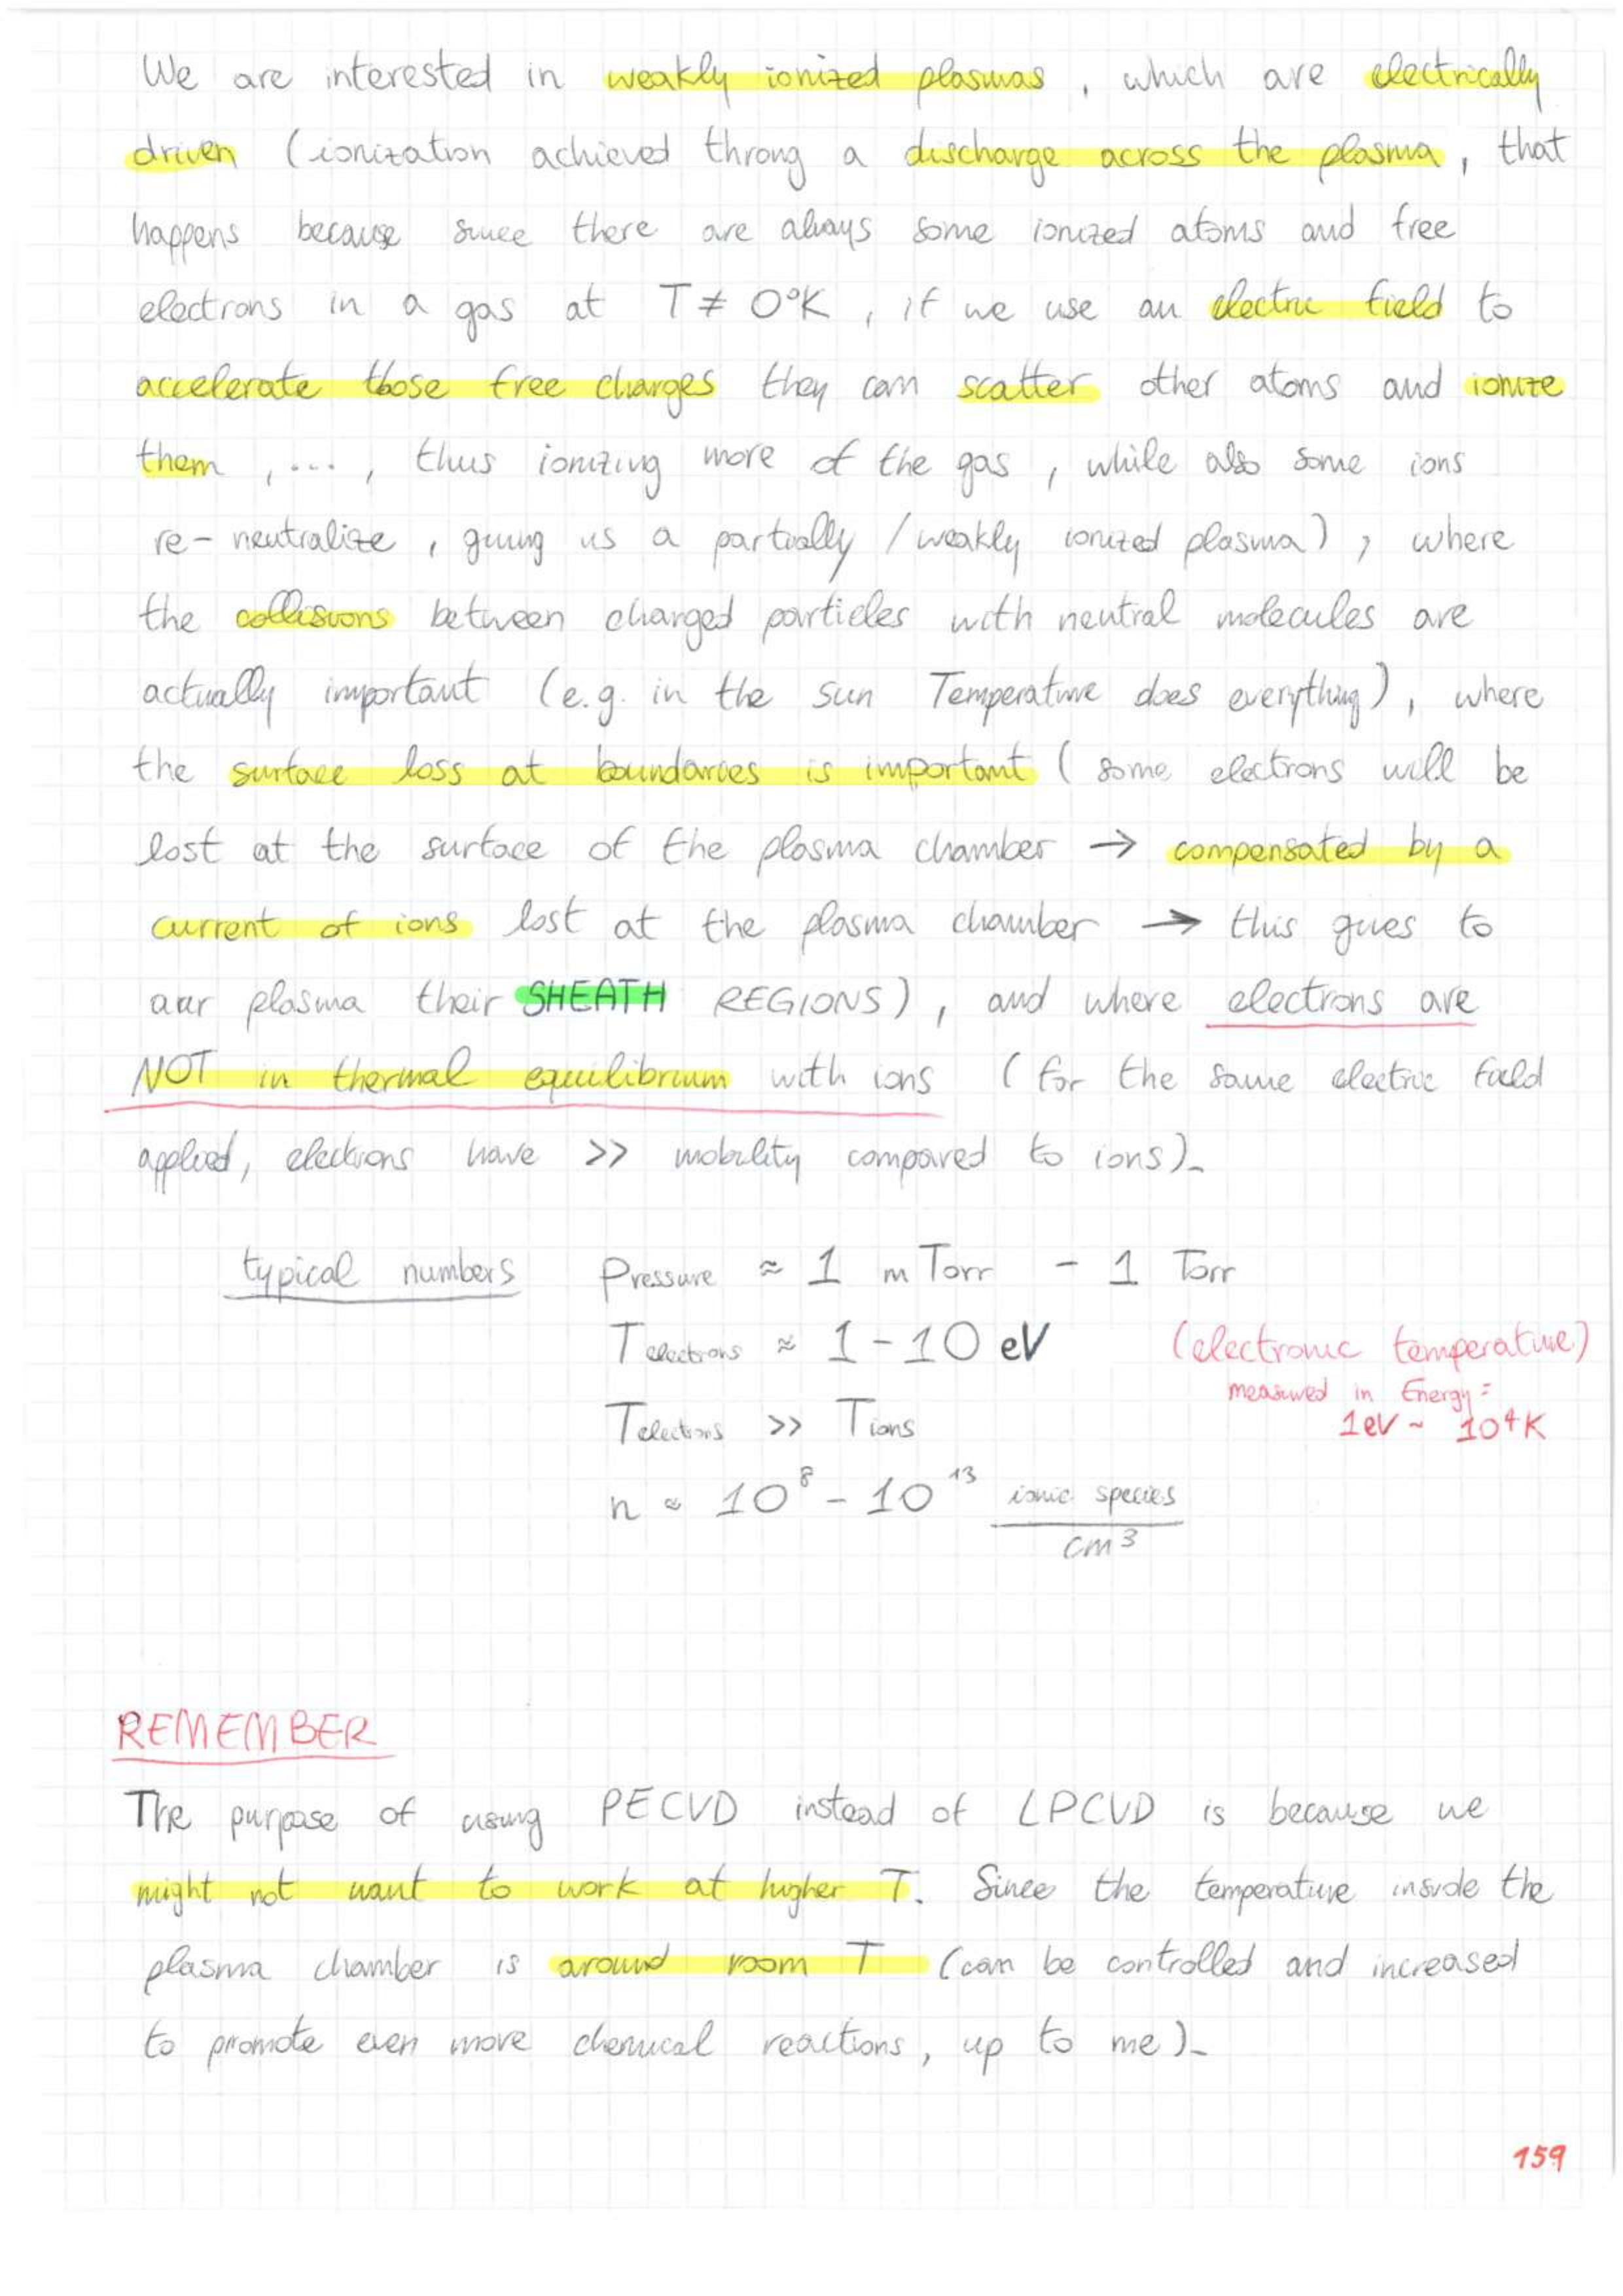 We are interested in weakly ionized plasmas, which are electrically
driven (ionization achieved throug a discharge across the plasma, that
happens because since there are always some ionized atoms and free
electrons in a gas at T ≠ 0°K, if we use an electric field to
accelerate those free charges they can scatter other atoms and ionize
them, ..., thus ionizing more of the gas, while also some ions
re-neutralize, giving us a partially / weakly ionized plasma), where
the collisions between charged particles with neutral molecules are
actually important (e.g. in the sun Temperature does everything), where
the surface loss at boundaries is important (some electrons will be
lost at the surface of the plasma chamber → compensated by a
current of ions lost at the plasma chamber → this gives to
our plasma their SHEATH REGIONS), and where electrons are
NOT in thermal equilibrium with ions (for the same electric field
applied, electrons have >> mobility compared to ions).
typical numbers Pressure ≈ 1 mTorr - 1 Torr
T electrons ≈ 1 - 10 eV (electronic temperature)
measured in Energy:
1eV ~ 10⁴K
T electrons >> T ions
n ≈ 10⁸ - 10¹³ ionic species
cm³
REMEMBER
The purpose of using PECVD instead of LPCVD is because we
might not want to work at higher T. Since the temperature inside the
plasma chamber is around room T (can be controlled and increased
to promote even more chemical reactions, up to me).
159